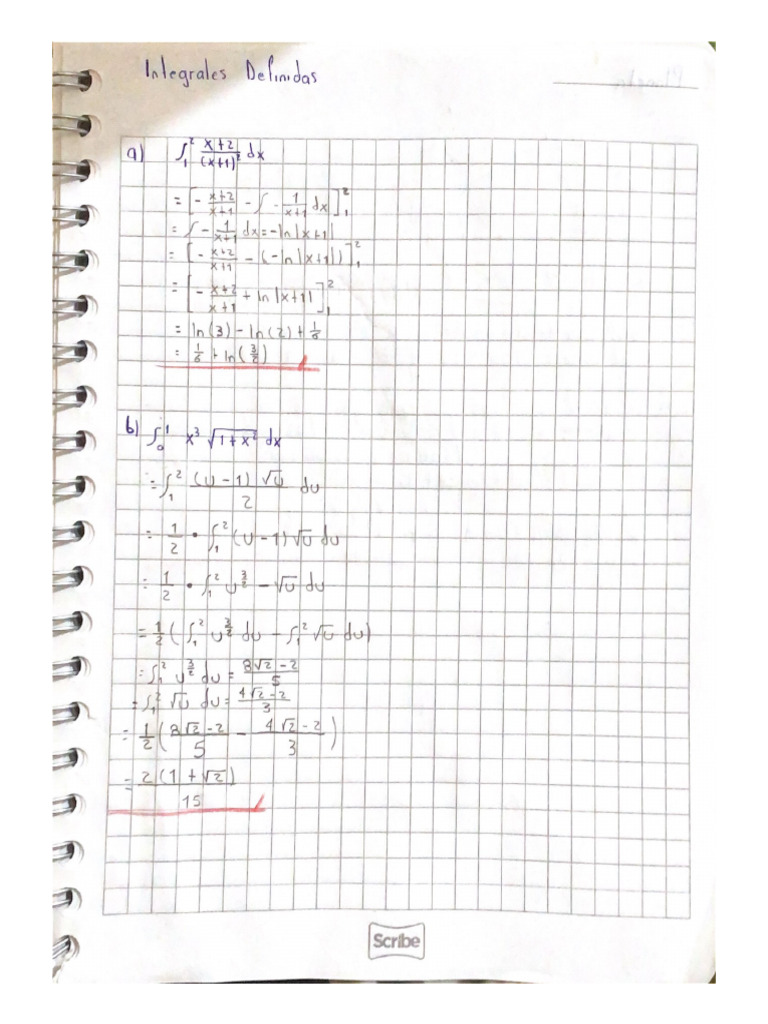 Integrales Definidas
a) ∫₁² (x+2)/(x+1)² dx
= [- (x+2)/(x+1) - ∫ - 1/(x+1) dx]₁²
= ∫ - 1/(x+1) dx = -ln|x+1|
= [- (x+2)/(x+1) - (-ln|x+1|)]₁²
= [- (x+2)/(x+1) + ln|x+1|]₁²
= ln(3) - ln(2) + 1/6
= 1/6 + ln(3/2)
b) ∫₀¹ x³ √(1+x²) dx
= ∫₁² (u-1)√u/2 du
= 1/2 • ∫₁² (u-1)√u du
= 1/2 • ∫₁² u^(3/2) - √u du
= 1/2 (∫₁² u^(3/2) du - ∫₁² √u du)
= ∫₁² u^(3/2) du = (8√2-2)/5
= ∫₁² √u du = (4√2-2)/3
= 1/2 ((8√2-2)/5 - (4√2-2)/3)
= 2(1+√2)/15
Scribe